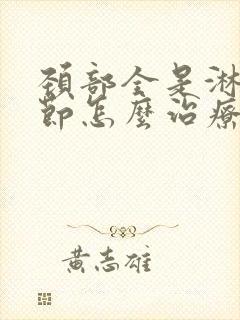 頸部全是淋
節怎麼治療
黃志雄